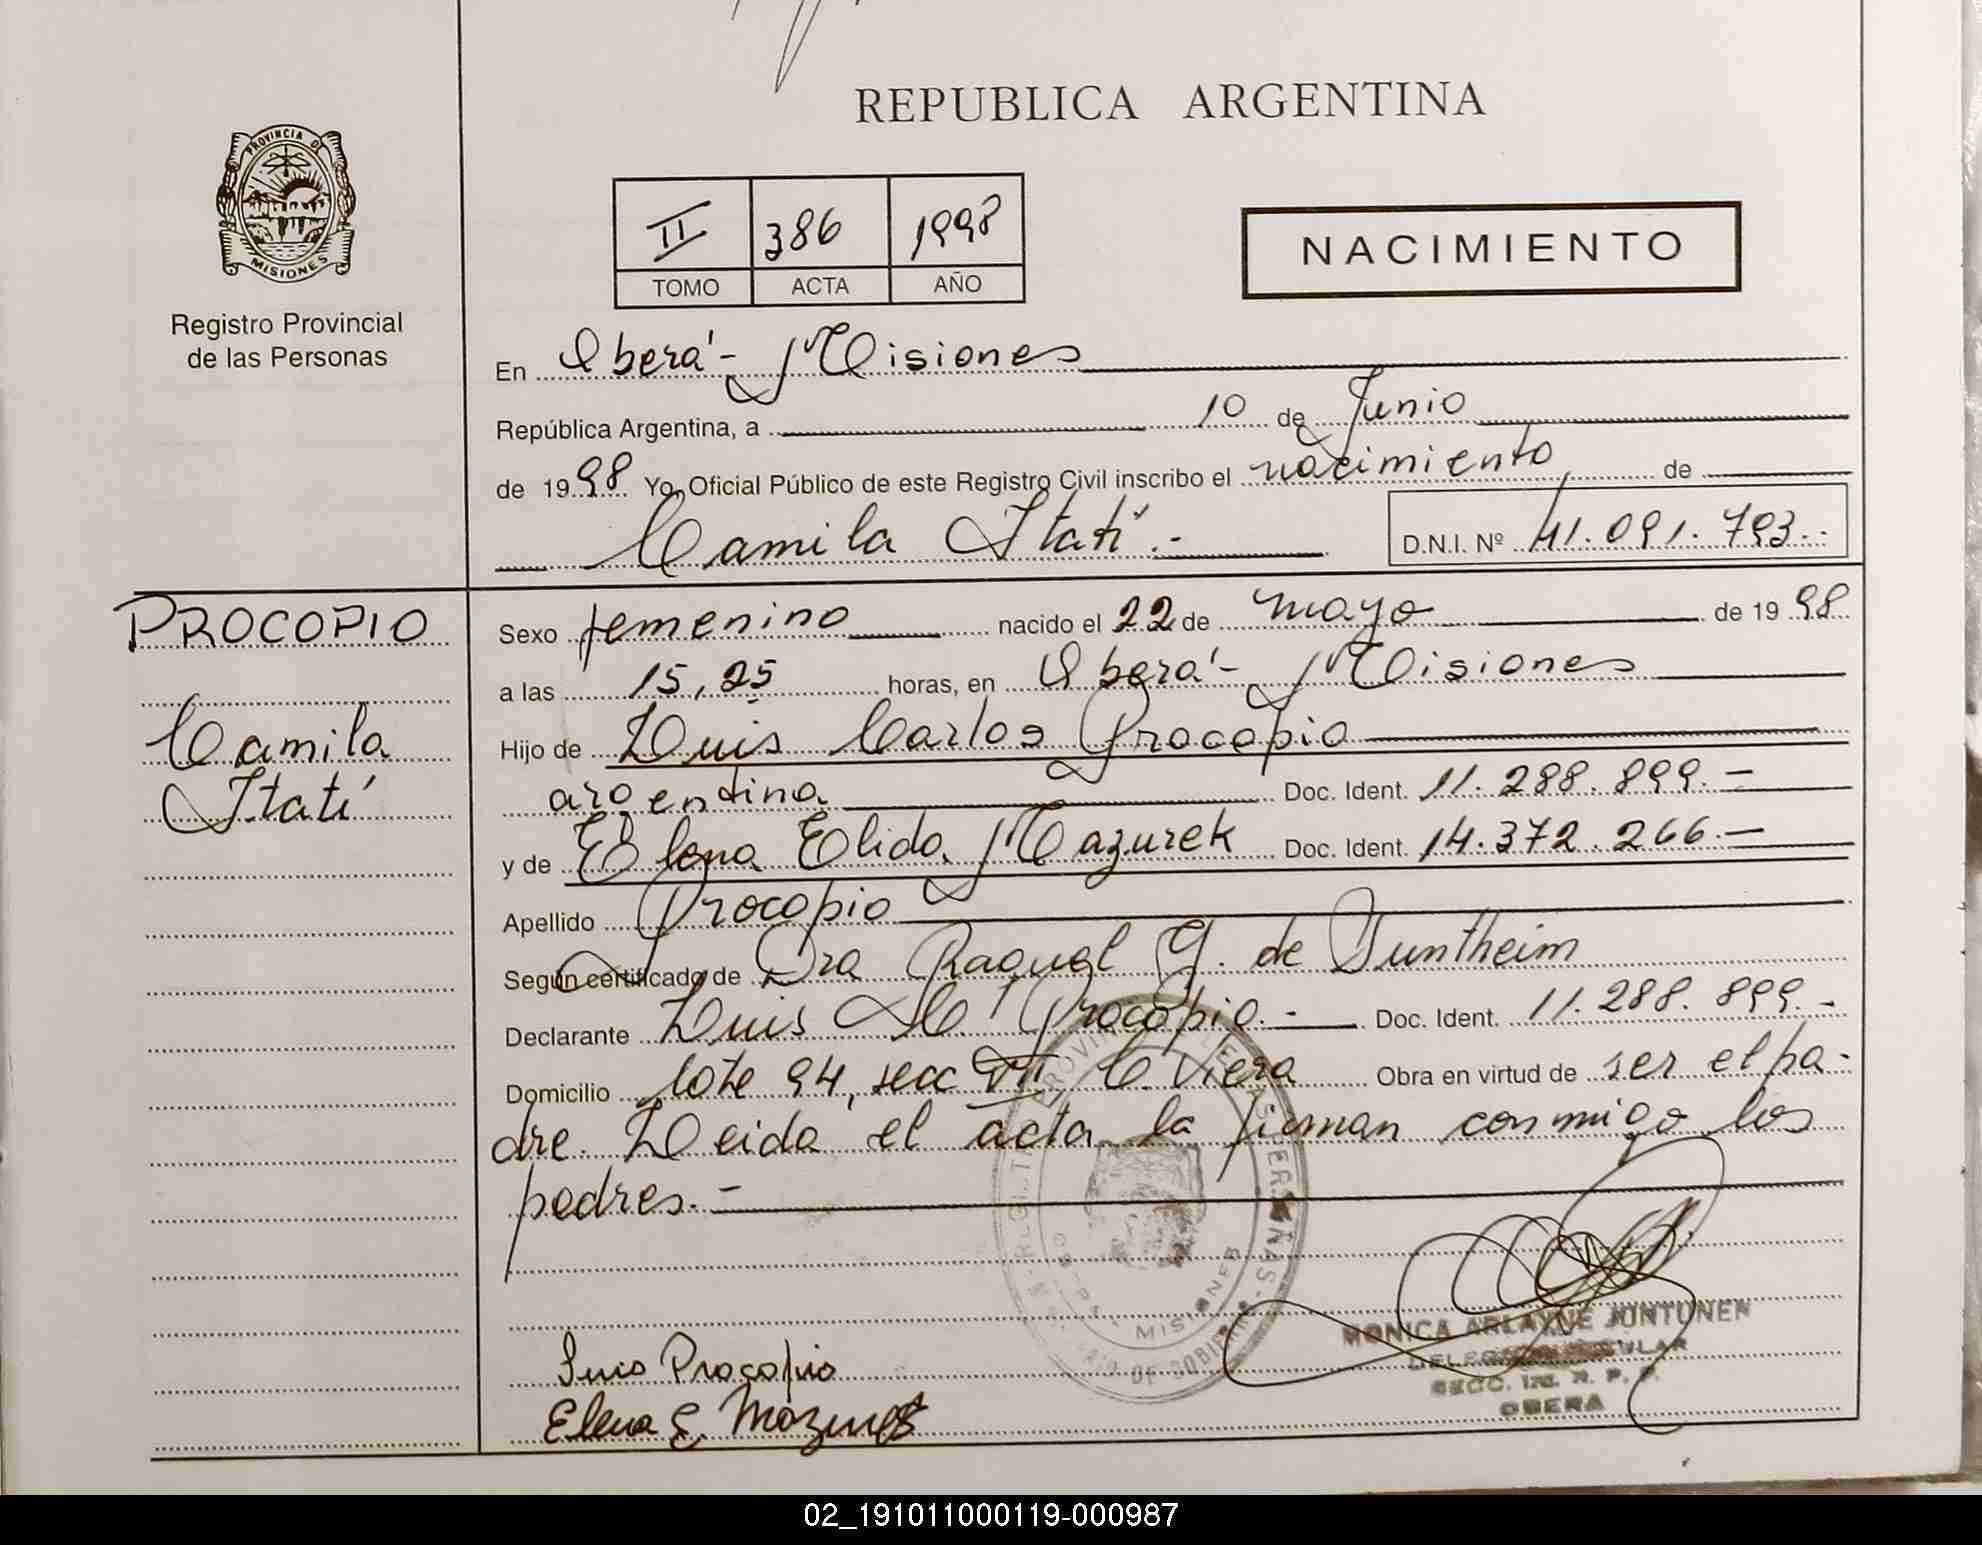 REPUBLICA ARGENTINA
PROVINCIA DE
MISIONES
Registro Provincial
de las Personas
II 386 1998
TOMO ACTA AÑO
NACIMIENTO
En Oberá - Misiones
República Argentina, a 10 de Junio
de 1998 Yo, Oficial Público de este Registro Civil inscribo el nacimiento de
Camila Itatí.-
D.N.I. Nº 41.091.793.-
PROCOPIO
Camila
Itatí
Sexo femenino nacido el 22 de mayo de 1998
a las 15,25 horas, en Oberá - Misiones
Hijo de Luis Carlos Procopio
argentina Doc. Ident. 11.288.899.-
y de Elena Elida Mazurek Doc. Ident. 14.372.266.-
Apellido Procopio
Según certificado de Dra Raquel G. de Suntheim
Declarante Luis C Procopio.- Doc. Ident. 11.288.899.-
Domicilio lote 94, secc VII, C. Viera Obra en virtud de ser el pa-
dre. Leida el acta la firman conmigo los
padres.-
MISIONES
Luis Procopio
Elena E. Mazurek
MONICA ARLAYNE JUNTUNEN
OBERA
02_191011000119-000987